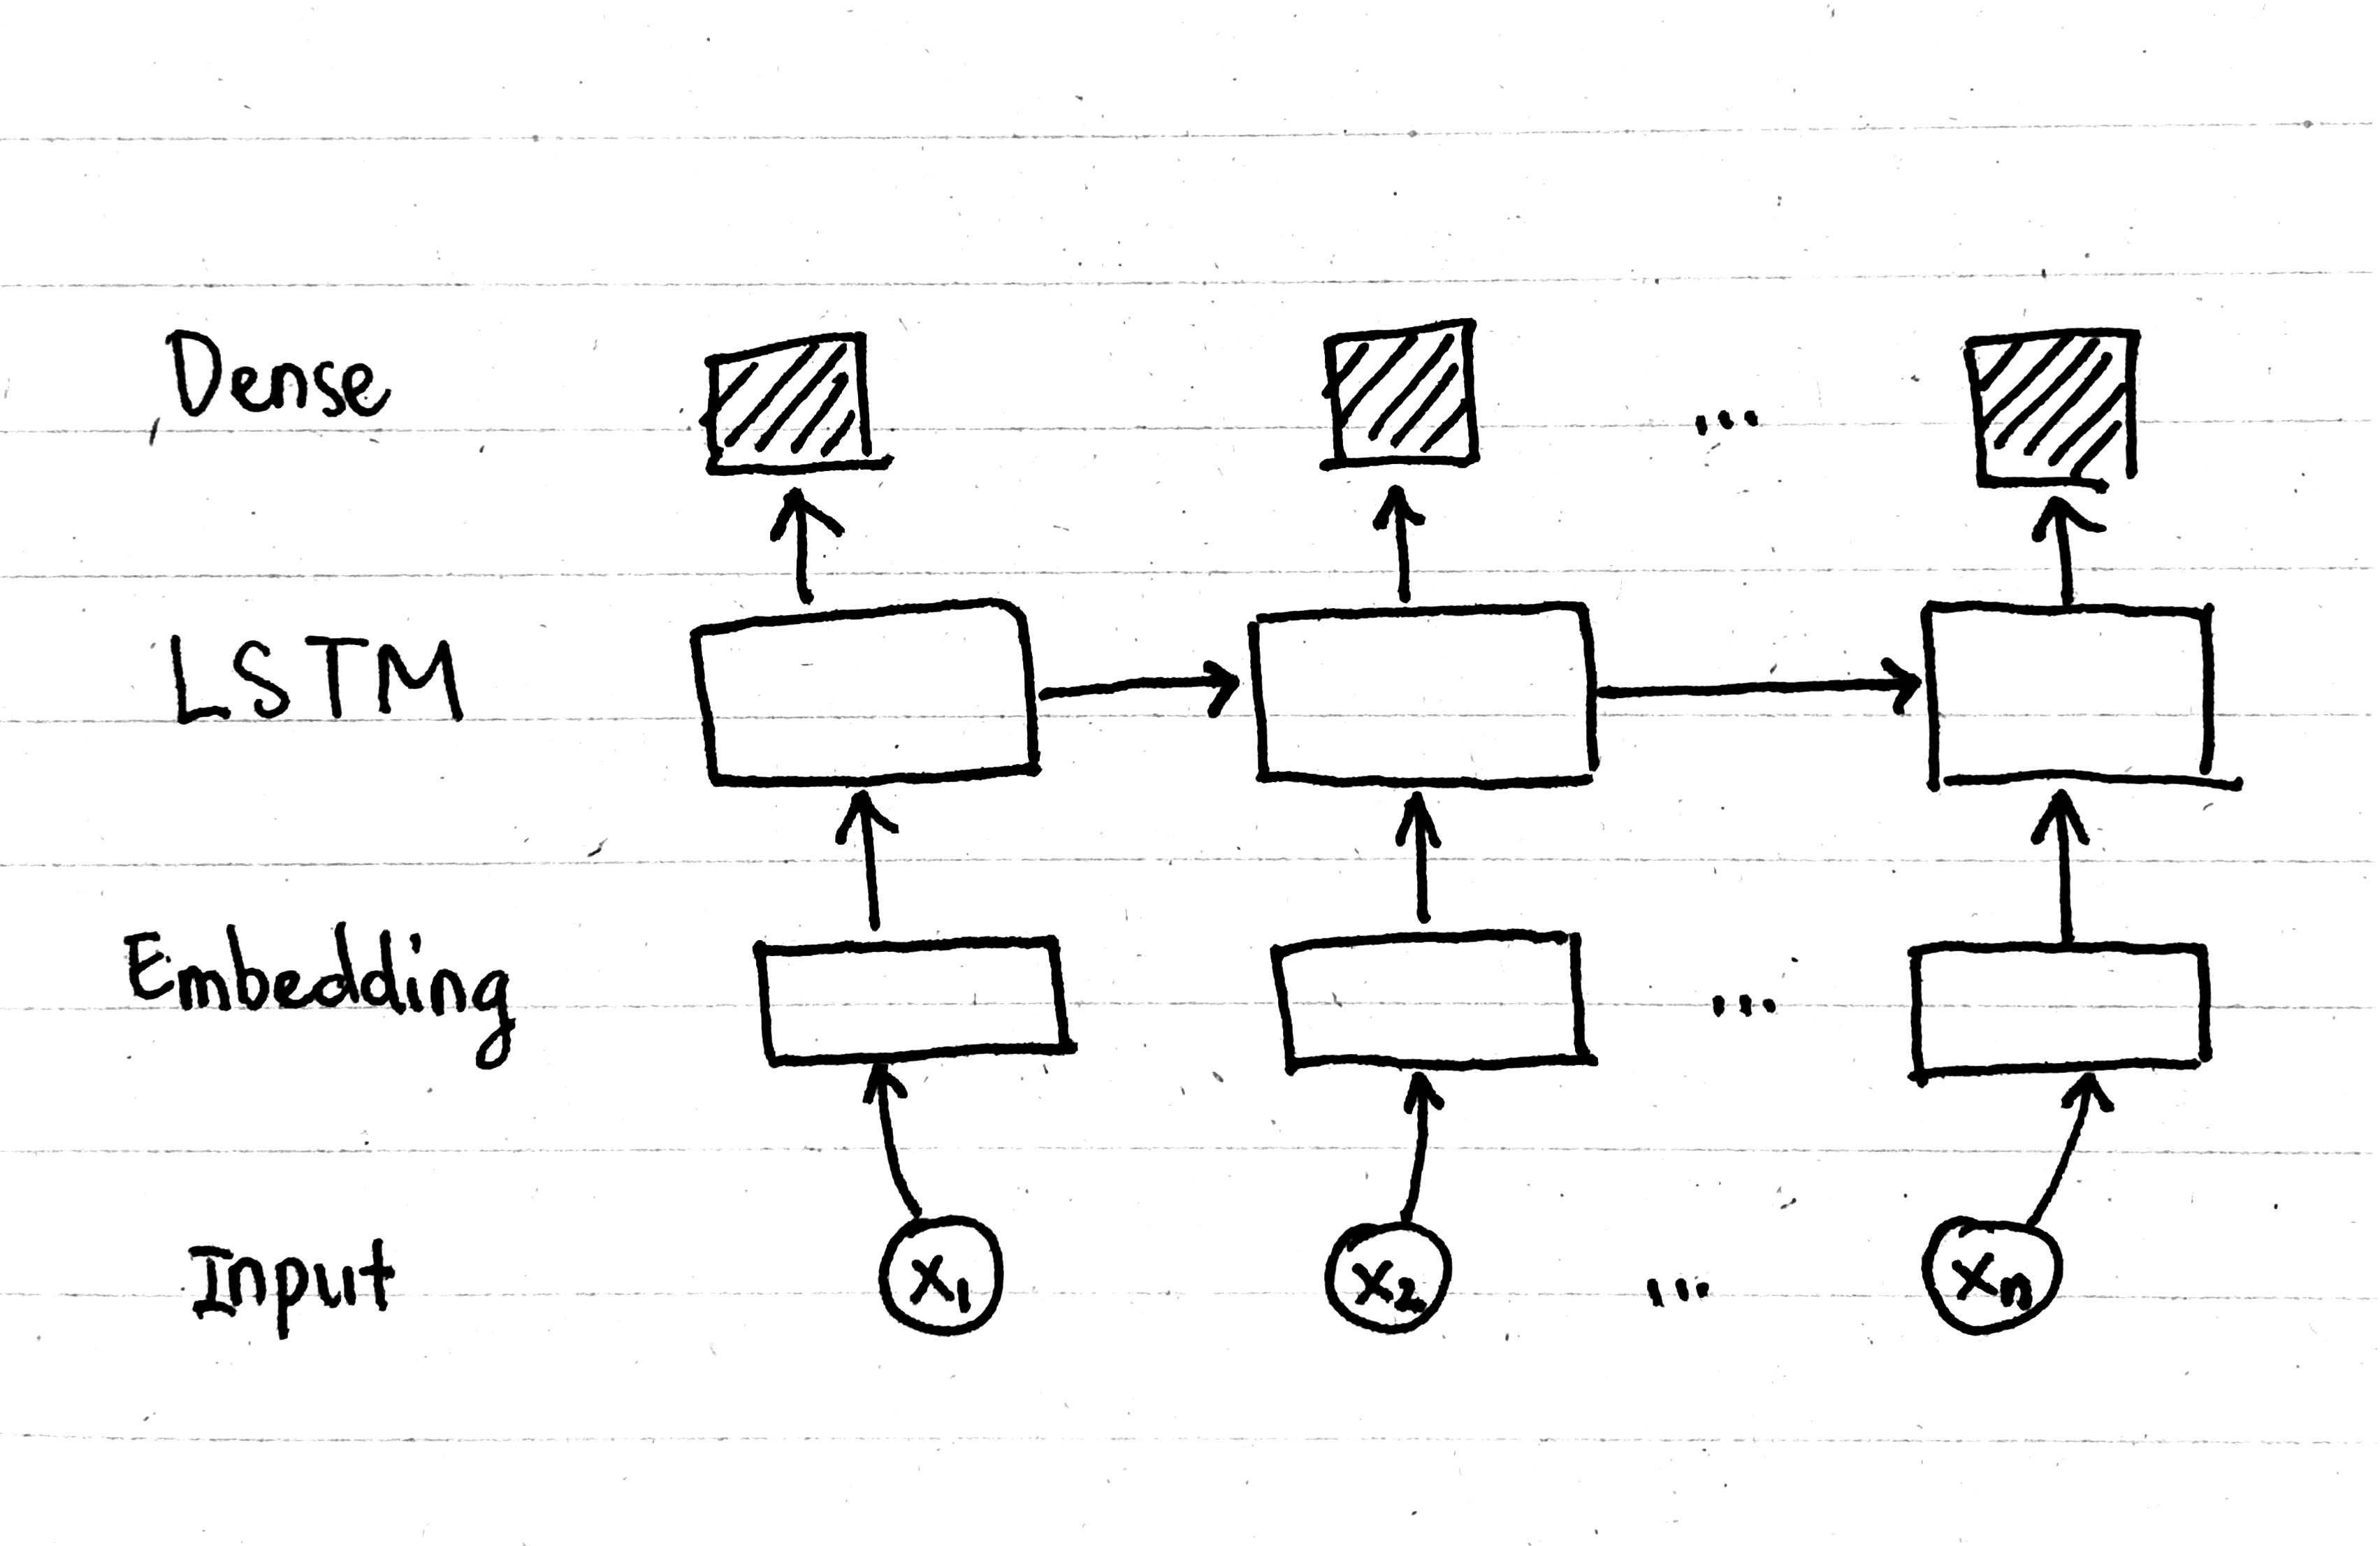 Dense
...
LSTM
Embedding
...
Input
x1
x2
...
xn